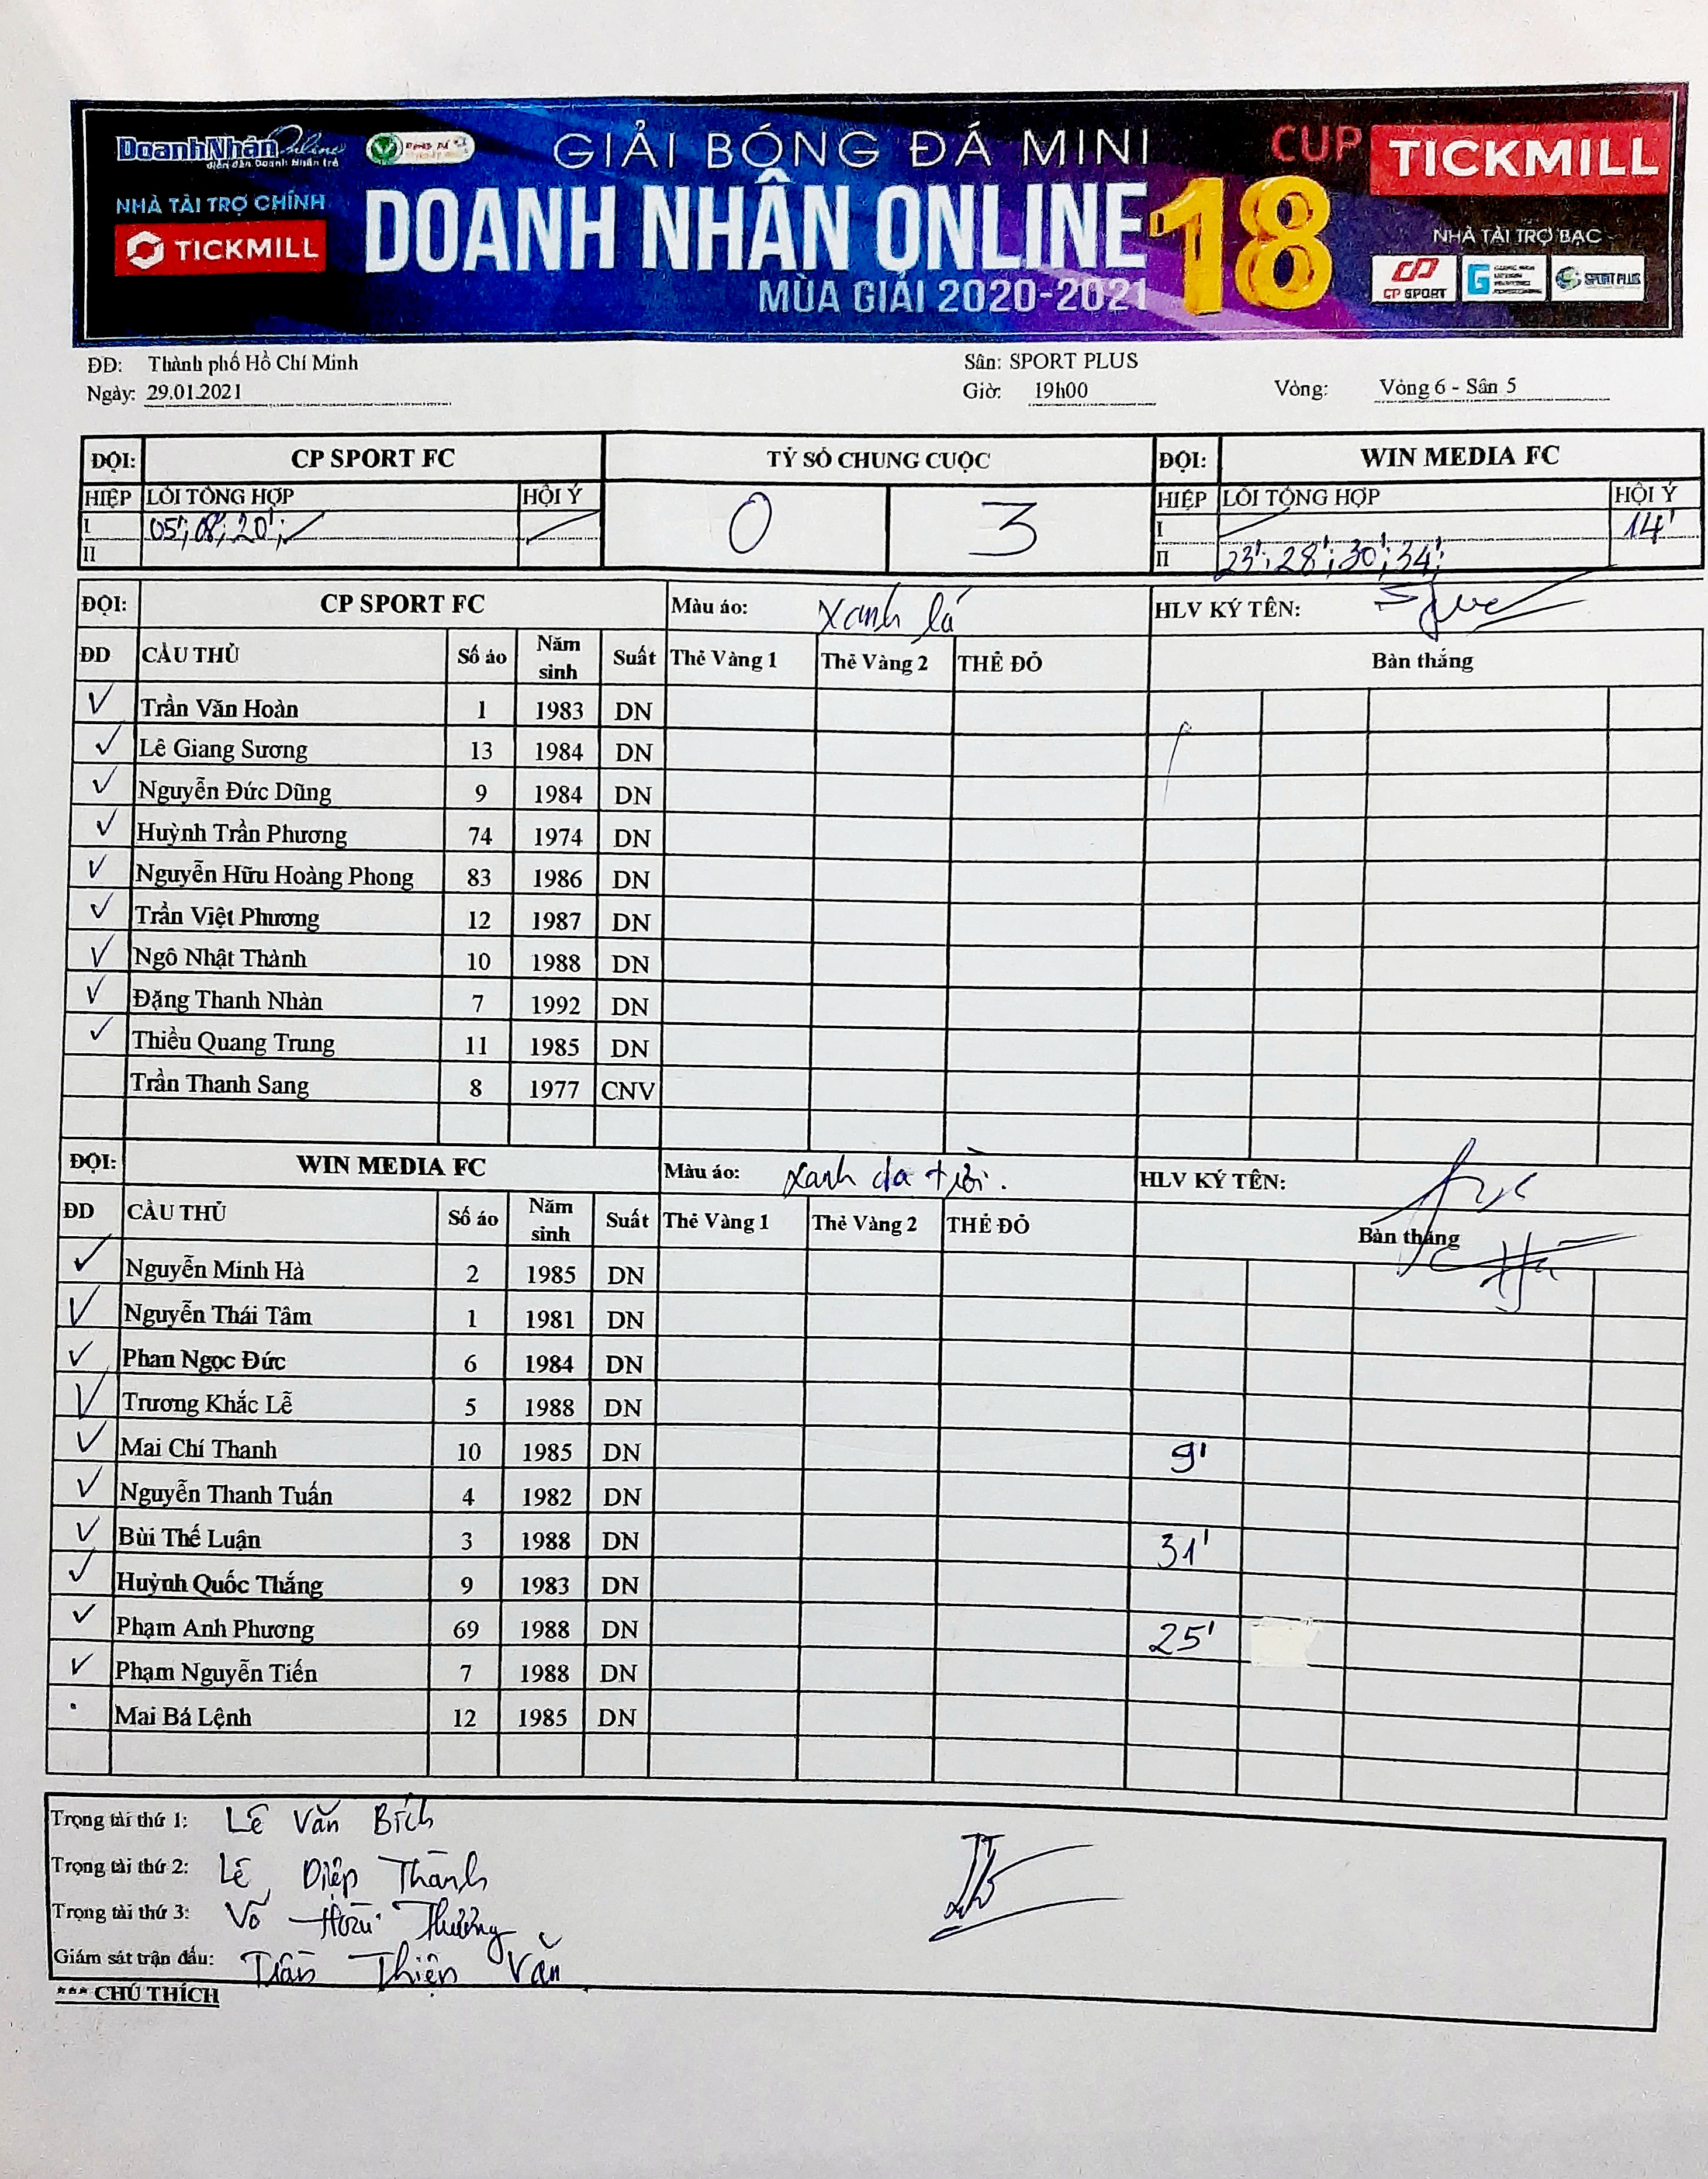 DoanhNhân Online
diễn đàn Doanh Nhân trẻ
GIẢI BÓNG ĐÁ MINI
CUP TICKMILL
NHÀ TÀI TRỢ CHÍNH
TICKMILL
DOANH NHÂN ONLINE 18
MÙA GIẢI 2020-2021
NHÀ TÀI TRỢ BẠC
CP SPORT
SPORT PLUS
ĐĐ: Thành phố Hồ Chí Minh Sân: SPORT PLUS
Ngày: 29.01.2021 Giờ: 19h00 Vòng: Vòng 6 - Sân 5
ĐỘI: CP SPORT FC TỶ SỐ CHUNG CUỘC ĐỘI: WIN MEDIA FC
HIỆP LỖI TỔNG HỢP HỘI Ý 0 3 HIỆP LỖI TỔNG HỢP HỘI Ý
I 05'; 08'; 20'; I 14'
II II 23'; 28'; 30'; 34';
ĐỘI: CP SPORT FC Màu áo: Xanh lá HLV KÝ TÊN:
ĐD CẦU THỦ Số áo Năm sinh Suất Thẻ Vàng 1 Thẻ Vàng 2 THẺ ĐỎ Bàn thắng
Trần Văn Hoàn 1 1983 DN
Lê Giang Sương 13 1984 DN
Nguyễn Đức Dũng 9 1984 DN
Huỳnh Trần Phương 74 1974 DN
Nguyễn Hữu Hoàng Phong 83 1986 DN
Trần Việt Phương 12 1987 DN
Ngô Nhật Thành 10 1988 DN
Đặng Thanh Nhàn 7 1992 DN
Thiều Quang Trung 11 1985 DN
Trần Thanh Sang 8 1977 CNV
ĐỘI: WIN MEDIA FC Màu áo: Xanh da trời. HLV KÝ TÊN:
ĐD CẦU THỦ Số áo Năm sinh Suất Thẻ Vàng 1 Thẻ Vàng 2 THẺ ĐỎ Bàn thắng
Nguyễn Minh Hà 2 1985 DN
Nguyễn Thái Tâm 1 1981 DN
Phan Ngọc Đức 6 1984 DN
Trương Khắc Lễ 5 1988 DN
Mai Chí Thanh 10 1985 DN 9'
Nguyễn Thanh Tuấn 4 1982 DN
Bùi Thế Luận 3 1988 DN 31'
Huỳnh Quốc Thắng 9 1983 DN
Phạm Anh Phương 69 1988 DN 25'
Phạm Nguyễn Tiến 7 1988 DN
Mai Bá Lệnh 12 1985 DN
Trọng tài thứ 1: Lê Văn Bích
Trọng tài thứ 2: Lê Diệp Thành
Trọng tài thứ 3: Võ Hoài Thương
Giám sát trận đấu: Trần Thiện Văn
*** CHÚ THÍCH